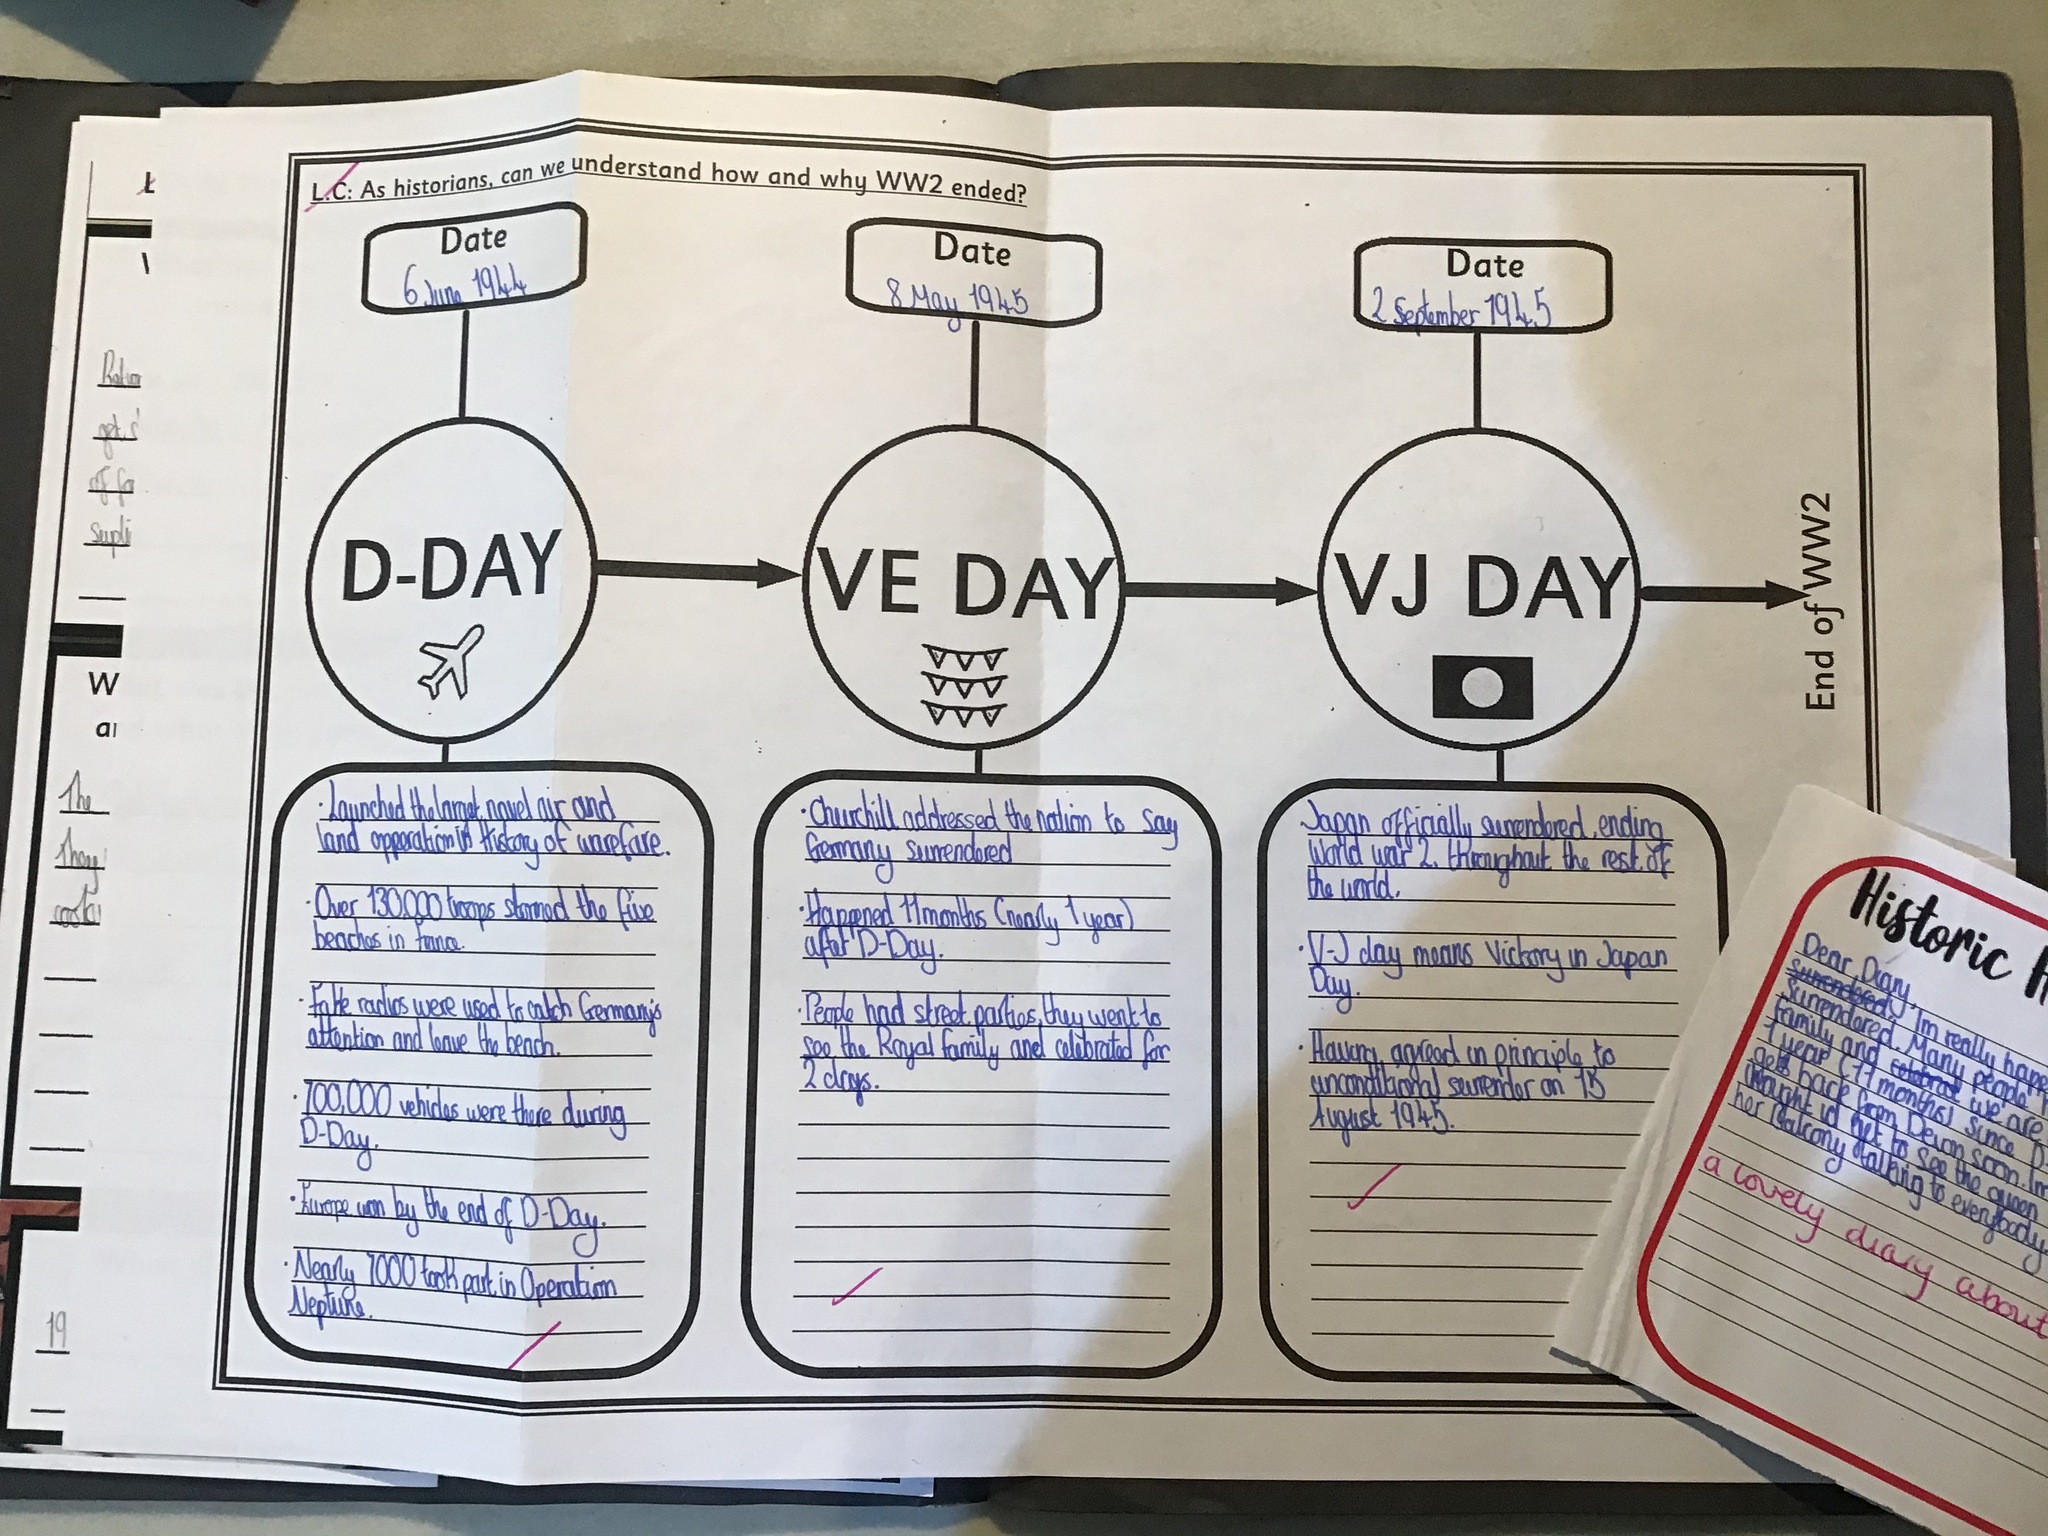 L.C: As historians, can we understand how and why WW2 ended?
Date
6 June 1944
Date
8 May 1945
Date
2 September 1945
D-DAY
VE DAY
VJ DAY
End of WW2
· Launched the largest, naval air and
land opperation in History of warefare.
· Over 130,000 troops stormed the five
beaches in france.
· Fake radios were used to catch Germany's
attention and leave the beach.
· 100,000 vehicles were there during
D-Day.
· Europe won by the end of D-Day.
· Nearly 7000 took part in Operation
Neptune.
· Churchill addressed the nation to say
Germany surrendered
· Happened 11 months (nearly 1 year)
after D-Day.
· People had street parties, they went to
see the Royal family and celebrated for
2 days.
Japan officially surrendered, ending
World war 2. throughout the rest of
the world.
· V-J day means Victory in Japan
Day.
· Having agreed in principle to
unconditional surrender on 15
August 1945.
Historic
Dear Diary,
Surrendered, Im really
Surrendered. Many people
family and celebrat we are
1 year (11 months) since D-
gets back from Devon soon. Im
thought id get to see the queen
her Balcony talking to everybody.
a lovely diary about
W
The
They
19